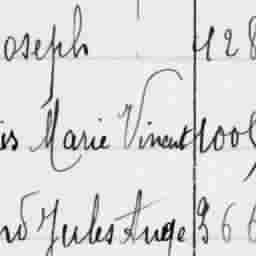 oseph 428
is Marie Vincent 1006
nd Jules Ange 366